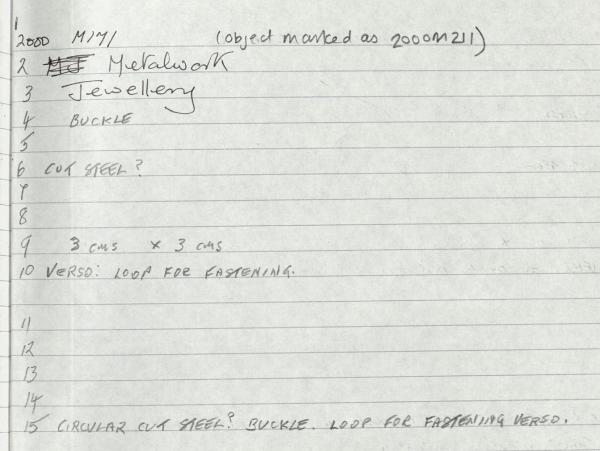 1
2000 M171 (object marked as 2000M211)
2 Metalwork
3 Jewellery
4 BUCKLE
5
6 CUT STEEL?
7
8
9 3 cms x 3 cms
10 VERSO: LOOP FOR FASTENING.
11
12
13
14
15 CIRCULAR CUT STEEL? BUCKLE. LOOP FOR FASTENING VERSO.